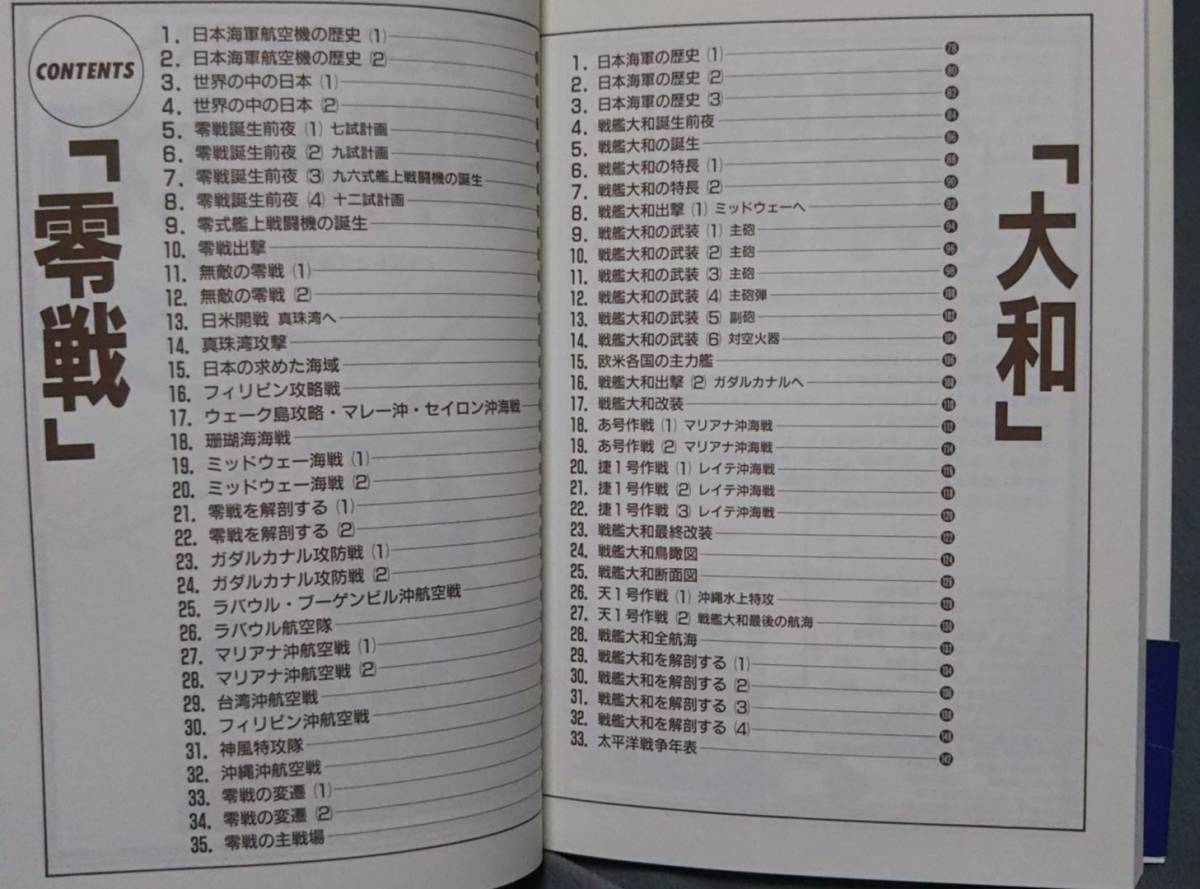 CONTENTS
「零戦」
1. 日本海軍航空機の歴史 (1)
2. 日本海軍航空機の歴史 (2)
3. 世界の中の日本 (1)
4. 世界の中の日本 (2)
5. 零戦誕生前夜 (1) 七試計画
6. 零戦誕生前夜 (2) 九試計画
7. 零戦誕生前夜 (3) 九六式艦上戦闘機の誕生
8. 零戦誕生前夜 (4) 十二試計画
9. 零式艦上戦闘機の誕生
10. 零戦出撃
11. 無敵の零戦 (1)
12. 無敵の零戦 (2)
13. 日米開戦 真珠湾へ
14. 真珠湾攻撃
15. 日本の求めた海域
16. フィリピン攻略戦
17. ウェーク島攻略・マレー沖・セイロン沖海戦
18. 珊瑚海海戦
19. ミッドウェー海戦 (1)
20. ミッドウェー海戦 (2)
21. 零戦を解剖する (1)
22. 零戦を解剖する (2)
23. ガダルカナル攻防戦 (1)
24. ガダルカナル攻防戦 (2)
25. ラバウル・ブーゲンビル沖航空戦
26. ラバウル航空隊
27. マリアナ沖航空戦 (1)
28. マリアナ沖航空戦 (2)
29. 台湾沖航空戦
30. フィリピン沖航空戦
31. 神風特攻隊
32. 沖縄沖航空戦
33. 零戦の変遷 (1)
34. 零戦の変遷 (2)
35. 零戦の主戦場
「大和」
1. 日本海軍の歴史 (1) 78
2. 日本海軍の歴史 (2) 80
3. 日本海軍の歴史 (3) 82
4. 戦艦大和誕生前夜 84
5. 戦艦大和の誕生 86
6. 戦艦大和の特長 (1) 88
7. 戦艦大和の特長 (2) 90
8. 戦艦大和出撃 (1) ミッドウェーへ 92
9. 戦艦大和の武装 (1) 主砲 94
10. 戦艦大和の武装 (2) 主砲 96
11. 戦艦大和の武装 (3) 主砲 98
12. 戦艦大和の武装 (4) 主砲弾
13. 戦艦大和の武装 (5) 副砲 102
14. 戦艦大和の武装 (6) 対空火器 104
15. 欧米各国の主力艦 106
16. 戦艦大和出撃 (2) ガダルカナルへ 108
17. 戦艦大和改装 110
18. あ号作戦 (1) マリアナ沖海戦 112
19. あ号作戦 (2) マリアナ沖海戦 114
20. 捷1号作戦 (1) レイテ沖海戦 116
21. 捷1号作戦 (2) レイテ沖海戦 118
22. 捷1号作戦 (3) レイテ沖海戦 120
23. 戦艦大和最終改装 122
24. 戦艦大和鳥瞰図 124
25. 戦艦大和断面図 126
26. 天1号作戦 (1) 沖縄水上特攻
27. 天1号作戦 (2) 戦艦大和最後の航海 130
28. 戦艦大和全航海 132
29. 戦艦大和を解剖する (1) 134
30. 戦艦大和を解剖する (2)
31. 戦艦大和を解剖する (3) 138
32. 戦艦大和を解剖する (4)
33. 太平洋戦争年表 142